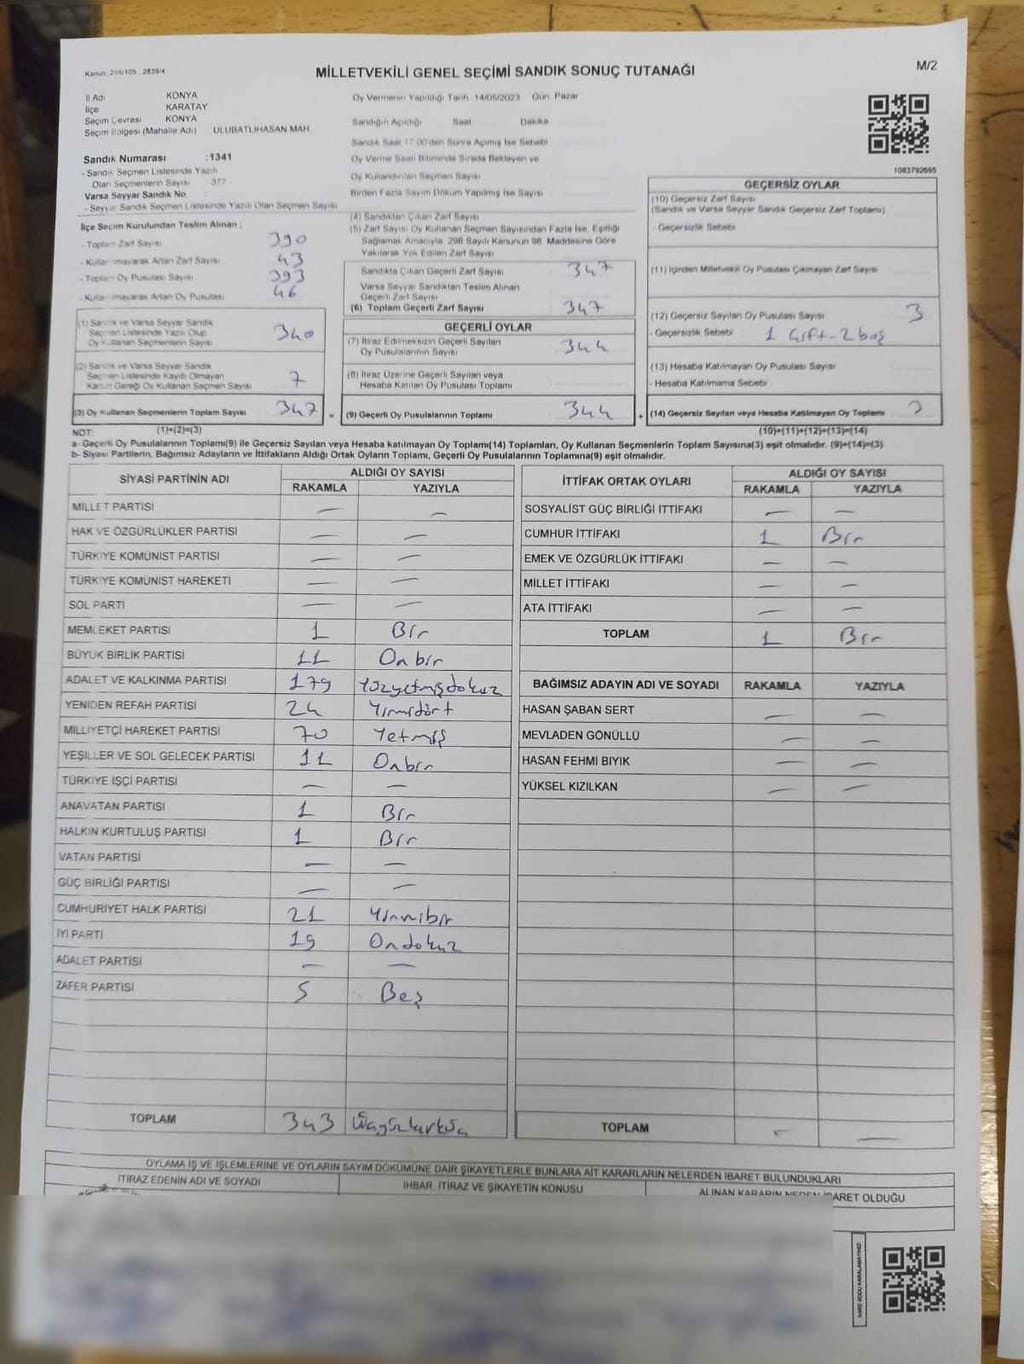 Kanun: 298/105 2839/4
MİLLETVEKİLİ GENEL SEÇİMİ SANDIK SONUÇ TUTANAĞI
M/2
İl Adı KONYA
İlçe KARATAY
Seçim Çevresi KONYA
Seçim Bölgesi (Mahalle Adı) ULUBATLIHASAN MAH.
Sandık Numarası :1341
- Sandık Seçmen Listesinde Yazılı
Olan Seçmenlerin Sayısı 377
Varsa Seyyar Sandık No
- Seyyar Sandık Seçmen Listesinde Yazılı Olan Seçmen Sayısı
Oy Vermenin Yapıldığı Tarih 14/05/2023 Gün Pazar
Sandığın Açıldığı Saat Dakika
Sandık Saat 17.00'den Sonra Açılmış İse Sebebi
Oy Verme Saati Bitiminde Sırada Bekleyen ve
Oy Kullandırılan Seçmen Sayısı
Birden Fazla Sayım Döküm Yapılmış İse Sayısı
1083792695
İlçe Seçim Kurulundan Teslim Alınan ;
- Toplam Zarf Sayısı 390
- Kullanılmayarak Artan Zarf Sayısı 43
- Toplam Oy Pusulası Sayısı 393
- Kullanılmayarak Artan Oy Pusulası 46
(1) Sandık ve Varsa Seyyar Sandık
Seçmen Listesinde Yazılı Olup
Oy Kullanan Seçmenlerin Sayısı 340
(2) Sandık ve Varsa Seyyar Sandık
Seçmen Listesinde Kayıtlı Olmayan
Kanun Gereği Oy Kullanan Seçmen Sayısı 7
(3) Oy Kullanan Seçmenlerin Toplam Sayısı 347 =
(4) Sandıktan Çıkan Zarf Sayısı
(5) Zarf Sayısı Oy Kullanan Seçmen Sayısından Fazla İse, Eşitliği
Sağlamak Amacıyla, 298 Sayılı Kanunun 98. Maddesine Göre
Yakılarak Yok Edilen Zarf Sayısı
Sandıkta Çıkan Geçerli Zarf Sayısı 347
Varsa Seyyar Sandıktan Teslim Alınan
Geçerli Zarf Sayısı
(6) Toplam Geçerli Zarf Sayısı 347
GEÇERLİ OYLAR
(7) İtiraz Edilmeksizin Geçerli Sayılan
Oy Pusulalarının Sayısı 344
(8) İtiraz Üzerine Geçerli Sayılan veya
Hesaba Katılan Oy Pusulası Toplamı
(9) Geçerli Oy Pusulalarının Toplamı 344 +
GEÇERSİZ OYLAR
(10) Geçersiz Zarf Sayısı
(Sandık ve Varsa Seyyar Sandık Geçersiz Zarf Toplamı)
- Geçersizlik Sebebi
(11) İçinden Milletvekili Oy Pusulası Çıkmayan Zarf Sayısı
(12) Geçersiz Sayılan Oy Pusulası Sayısı 3
- Geçersizlik Sebebi 1 Çift - 2 boş
(13) Hesaba Katılmayan Oy Pusulası Sayısı
- Hesaba Katılmama Sebebi
(14) Geçersiz Sayılan veya Hesaba Katılmayan Oy Toplamı 3
NOT: (1)+(2)=(3) (10)+(11)+(12)+(13)=(14)
a- Geçerli Oy Pusulalarının Toplamı(9) ile Geçersiz Sayılan veya Hesaba katılmayan Oy Toplamı(14) Toplamları, Oy Kullanan Seçmenlerin Toplam Sayısına(3) eşit olmalıdır. (9)+(14)=(3)
b- Siyasi Partilerin, Bağımsız Adayların ve İttifakların Aldığı Ortak Oyların Toplamı, Geçerli Oy Pusulalarının Toplamına(9) eşit olmalıdır.
SİYASİ PARTİNİN ADI ALDIĞI OY SAYISI
RAKAMLA YAZIYLA
MİLLET PARTİSİ — —
HAK VE ÖZGÜRLÜKLER PARTİSİ — —
TÜRKİYE KOMÜNİST PARTİSİ — —
TÜRKİYE KOMÜNİST HAREKETİ — —
SOL PARTİ — —
MEMLEKET PARTİSİ 1 Bir
BÜYÜK BİRLİK PARTİSİ 11 Onbir
ADALET VE KALKINMA PARTİSİ 179 Yüzyetmişdokuz
YENİDEN REFAH PARTİSİ 24 Yirmidört
MİLLİYETÇİ HAREKET PARTİSİ 70 Yetmiş
YEŞİLLER VE SOL GELECEK PARTİSİ 11 Onbir
TÜRKİYE İŞÇİ PARTİSİ — —
ANAVATAN PARTİSİ 1 Bir
HALKIN KURTULUŞ PARTİSİ 1 Bir
VATAN PARTİSİ — —
GÜÇ BİRLİĞİ PARTİSİ — —
CUMHURİYET HALK PARTİSİ 21 Yirmibir
İYİ PARTİ 19 Ondokuz
ADALET PARTİSİ — —
ZAFER PARTİSİ 5 Beş
TOPLAM 343
İTTİFAK ORTAK OYLARI ALDIĞI OY SAYISI
RAKAMLA YAZIYLA
SOSYALİST GÜÇ BİRLİĞİ İTTİFAKI — —
CUMHUR İTTİFAKI 1 Bir
EMEK VE ÖZGÜRLÜK İTTİFAKI — —
MİLLET İTTİFAKI — —
ATA İTTİFAKI — —
TOPLAM 1 Bir
BAĞIMSIZ ADAYIN ADI VE SOYADI RAKAMLA YAZIYLA
HASAN ŞABAN SERT — —
MEVLADEN GÖNÜLLÜ — —
HASAN FEHMİ BIYIK — —
YÜKSEL KIZILKAN — —
TOPLAM — —
OYLAMA İŞ VE İŞLEMLERİNE VE OYLARIN SAYIM DÖKÜMÜNE DAİR ŞİKAYETLERLE BUNLARA AİT KARARLARIN NELERDEN İBARET BULUNDUKLARI
İTİRAZ EDENİN ADI VE SOYADI İHBAR, İTİRAZ VE ŞİKAYETİN KONUSU ALINAN KARARIN NEDEN İBARET OLDUĞU
KARE KODU KARALAMAYINIZ!